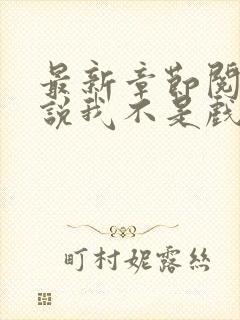 最新章節閱
說我不是戲
町村妮露絲